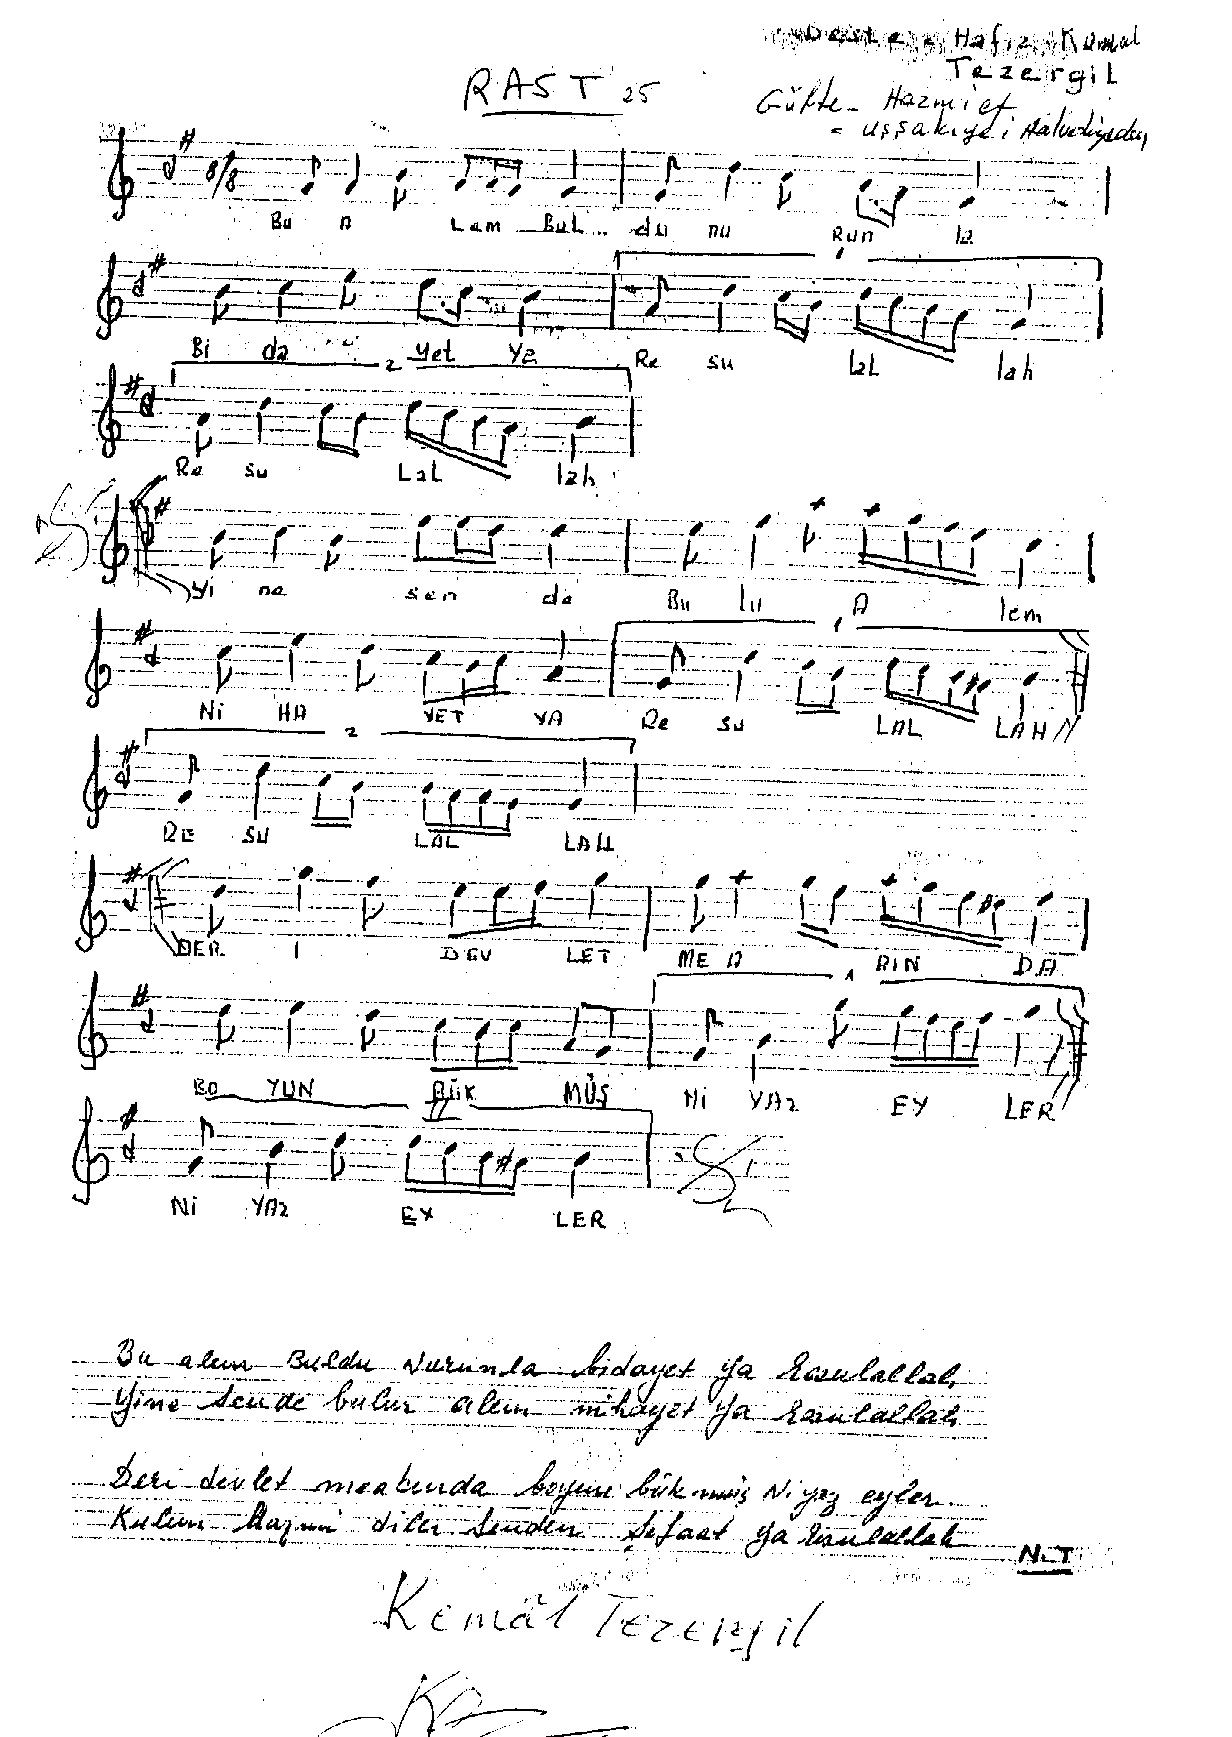 Beste - Hafız Kemal
Tezergil
RAST 25
Güfte - Hazmi ef
= uşşakiye i Halvetiyeden
8/8
Bu A Lem Bul.. du nu Run la
1
Bi da yet YA Re su lal lah
2
Re su LaL lah
Yi ne sen de Bu lu A lem
1
Ni HA YET YA Re su LAL LAH
2
RE SU LAL LAH
DER İ DEV LET ME A BIN DA
1
BO YUN BÜK MÜŞ Ni YAZ EY LER
II
Ni YAZ EY LER
Bu alem Buldu Nurunla bidayet Ya Resulallah
Yine Sende bulur alem nihayet Ya Resulallah
Deri devlet meabında boyun bükmüş Niyaz eyler.
Kulun Hazmi diler Senden Şefaat Ya Resulallah
N.T
Kemâl Tezergil